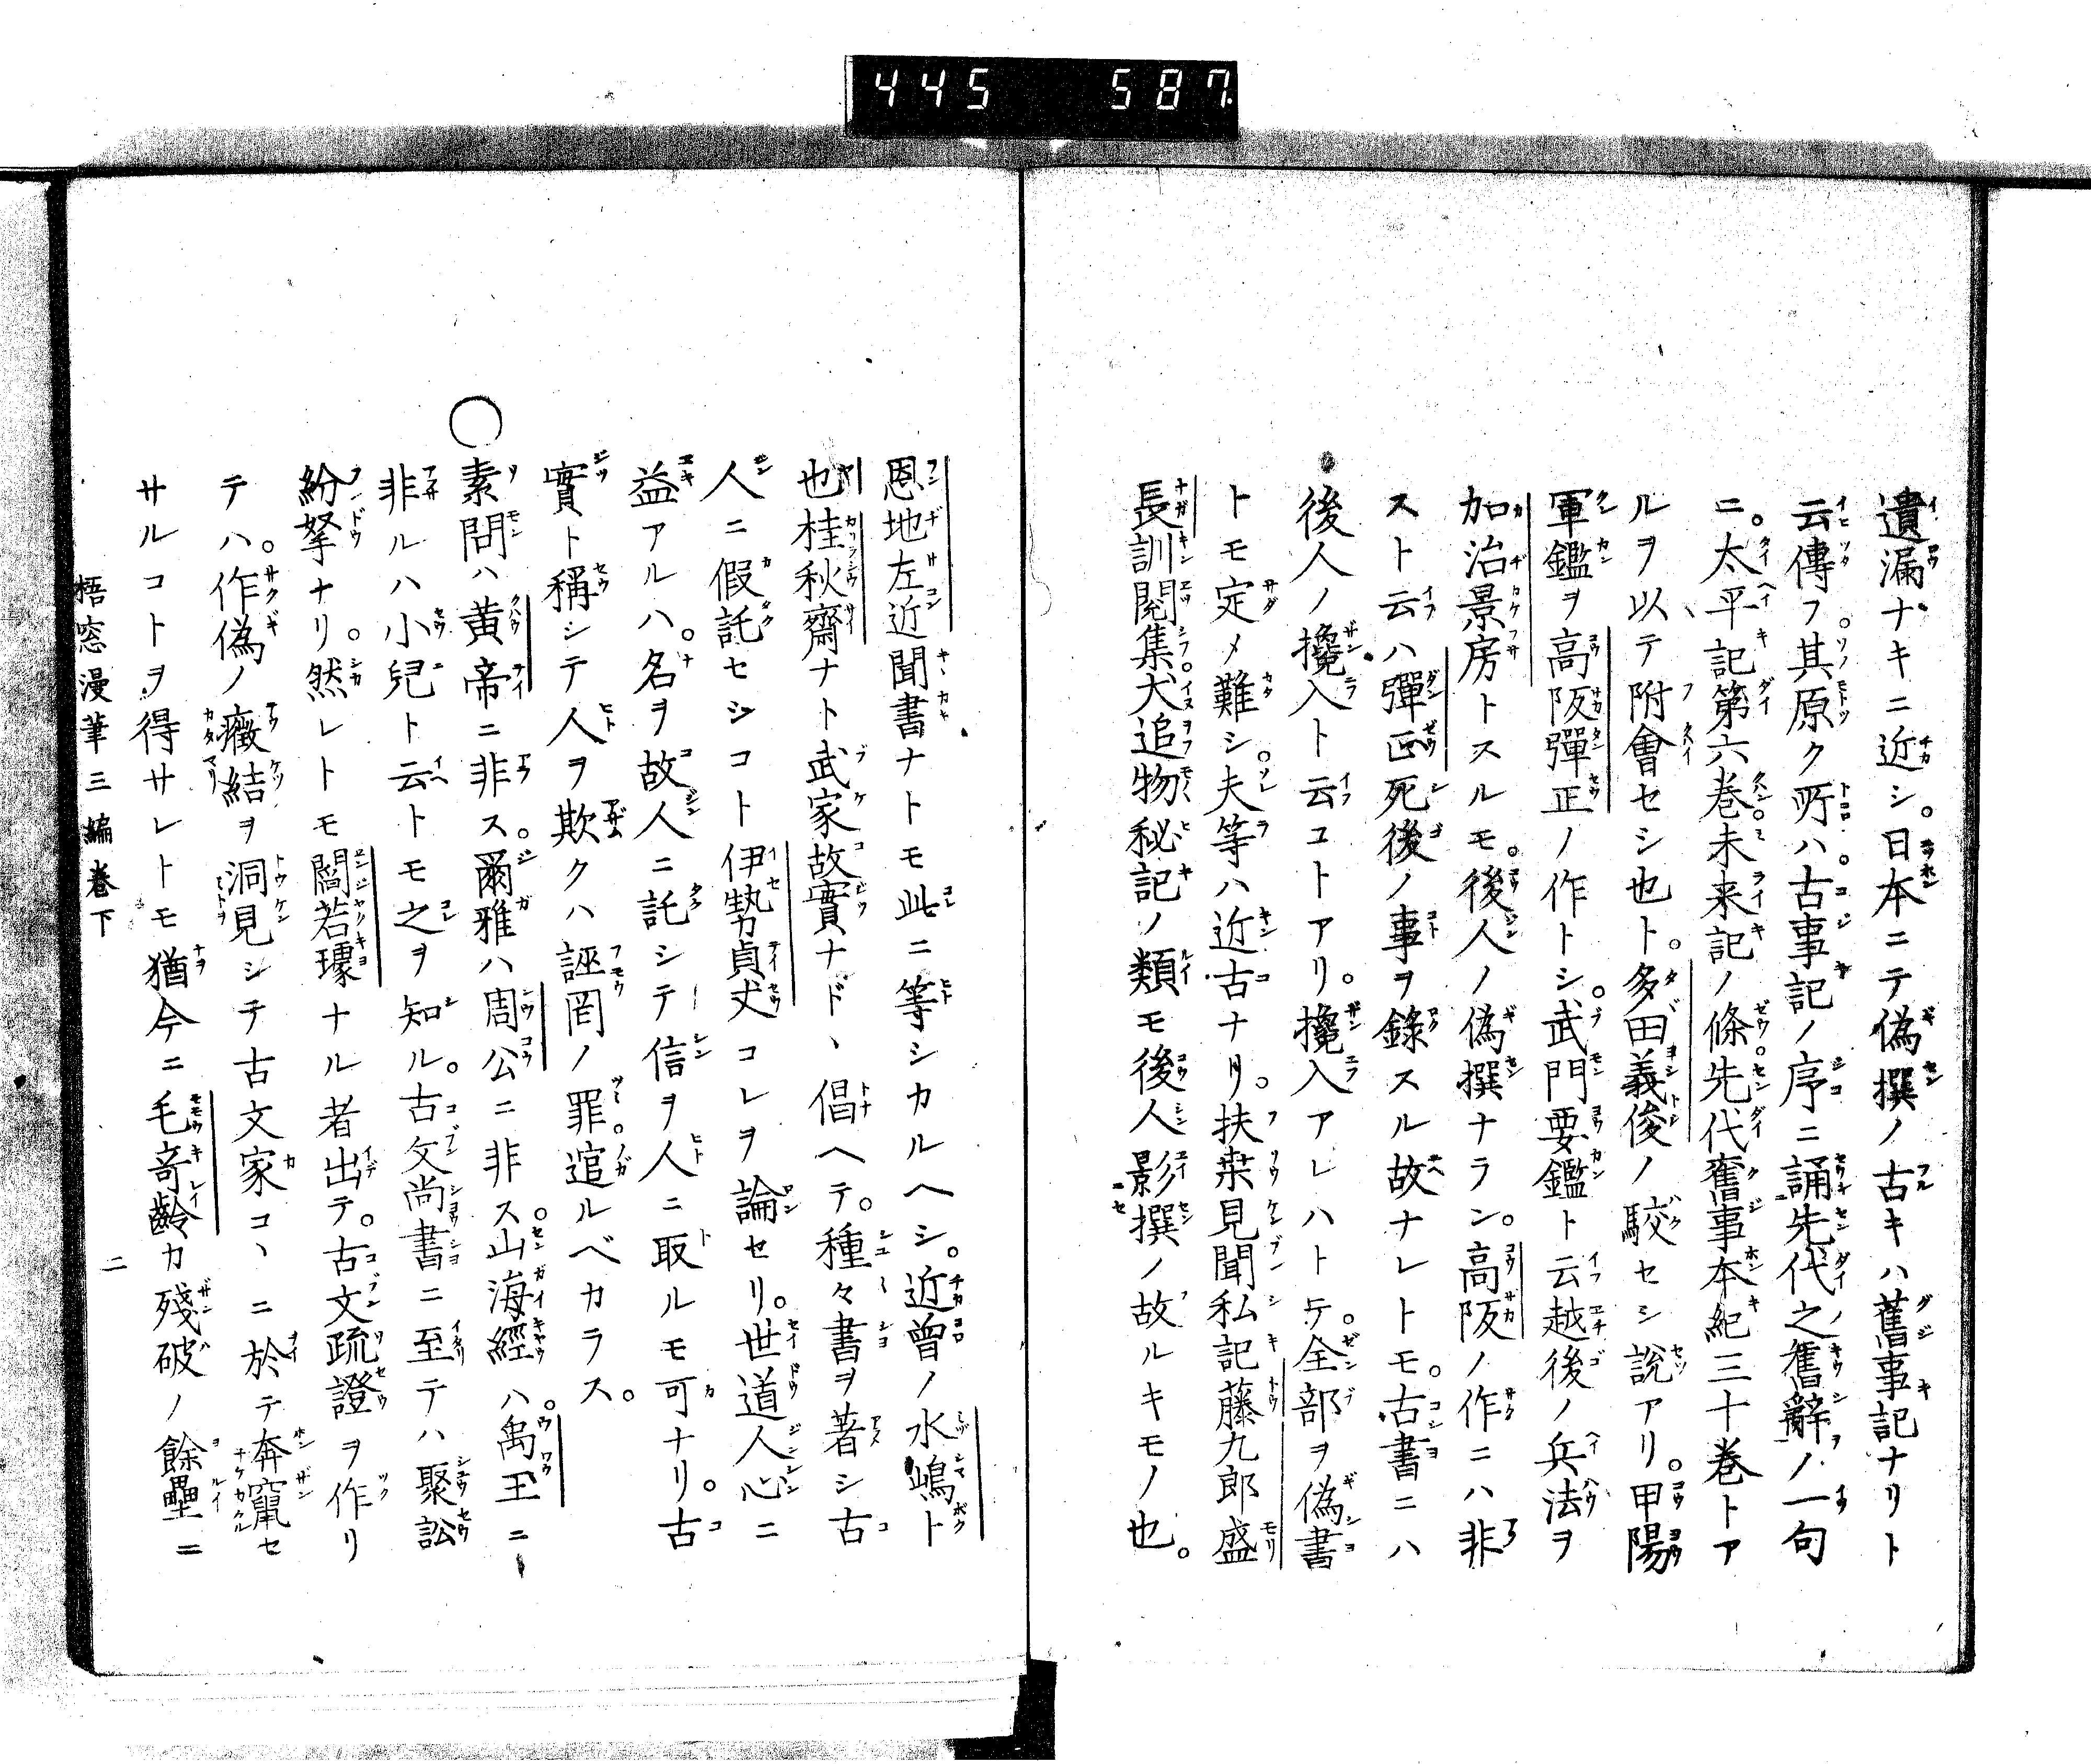 445 587
遺漏ナキニ近シ。日本ニテ偽撰ノ古キハ舊事記ナリト
云傳フ。其原ク所ハ。古事記ノ序ニ誦先代之舊辭ノ一句
ニ。太平記第六巻。未来記ノ條。先代舊事本紀三十巻トア
ルヲ以テ附會セシ也ト。多田義俊ノ駁セシ說アリ。甲陽
軍鑑ヲ高阪彈正ノ作トシ。武門要鑑ト云越後ノ兵法ヲ
加治景房トスルモ。後人ノ偽撰ナラン。高阪ノ作ニハ非
スト云ハ彈正死後ノ事ヲ錄スル故ナレトモ。古書ニハ
後人ノ攙入ト云コトアリ。攙入アレハトテ。全部ヲ偽書
トモ定メ難シ。夫等ハ近古ナリ。扶桒見聞私記藤九郎盛
長訓閱集。犬追物秘記ノ類モ後人影撰ノ故ルキモノ也。
恩地左近聞書ナトモ此ニ等シカルヘシ。近曾ノ水嶋ト
也桂秋齋ナト武家故實ナド、倡ヘテ。種々書ヲ著シ古
人ニ假託セシコト伊勢貞丈コレヲ論セリ。世道人心ニ
益アルハ。名ヲ故人ニ託シテ信ヲ人ニ取ルモ可ナリ。古
實ト稱シテ人ヲ欺クハ誣罔ノ罪。逭ルベカラス。
○素問ハ黃帝ニ非ス。爾雅ハ周公ニ非ス。山海經ハ。禹王ニ
非ルハ小兒ト云トモ之ヲ知ル。古文尚書ニ至テハ聚訟
紛拏ナリ。然レトモ閻若璩ナル者出テ。古文疏證ヲ作リ
テハ。作偽ノ癥結ヲ洞見シテ古文家コヽニ於テ奔竄セ
サルコトヲ得サレトモ猶今ニ毛奇齡カ殘破ノ餘壘ニ
梧窓漫筆三編巻下 二